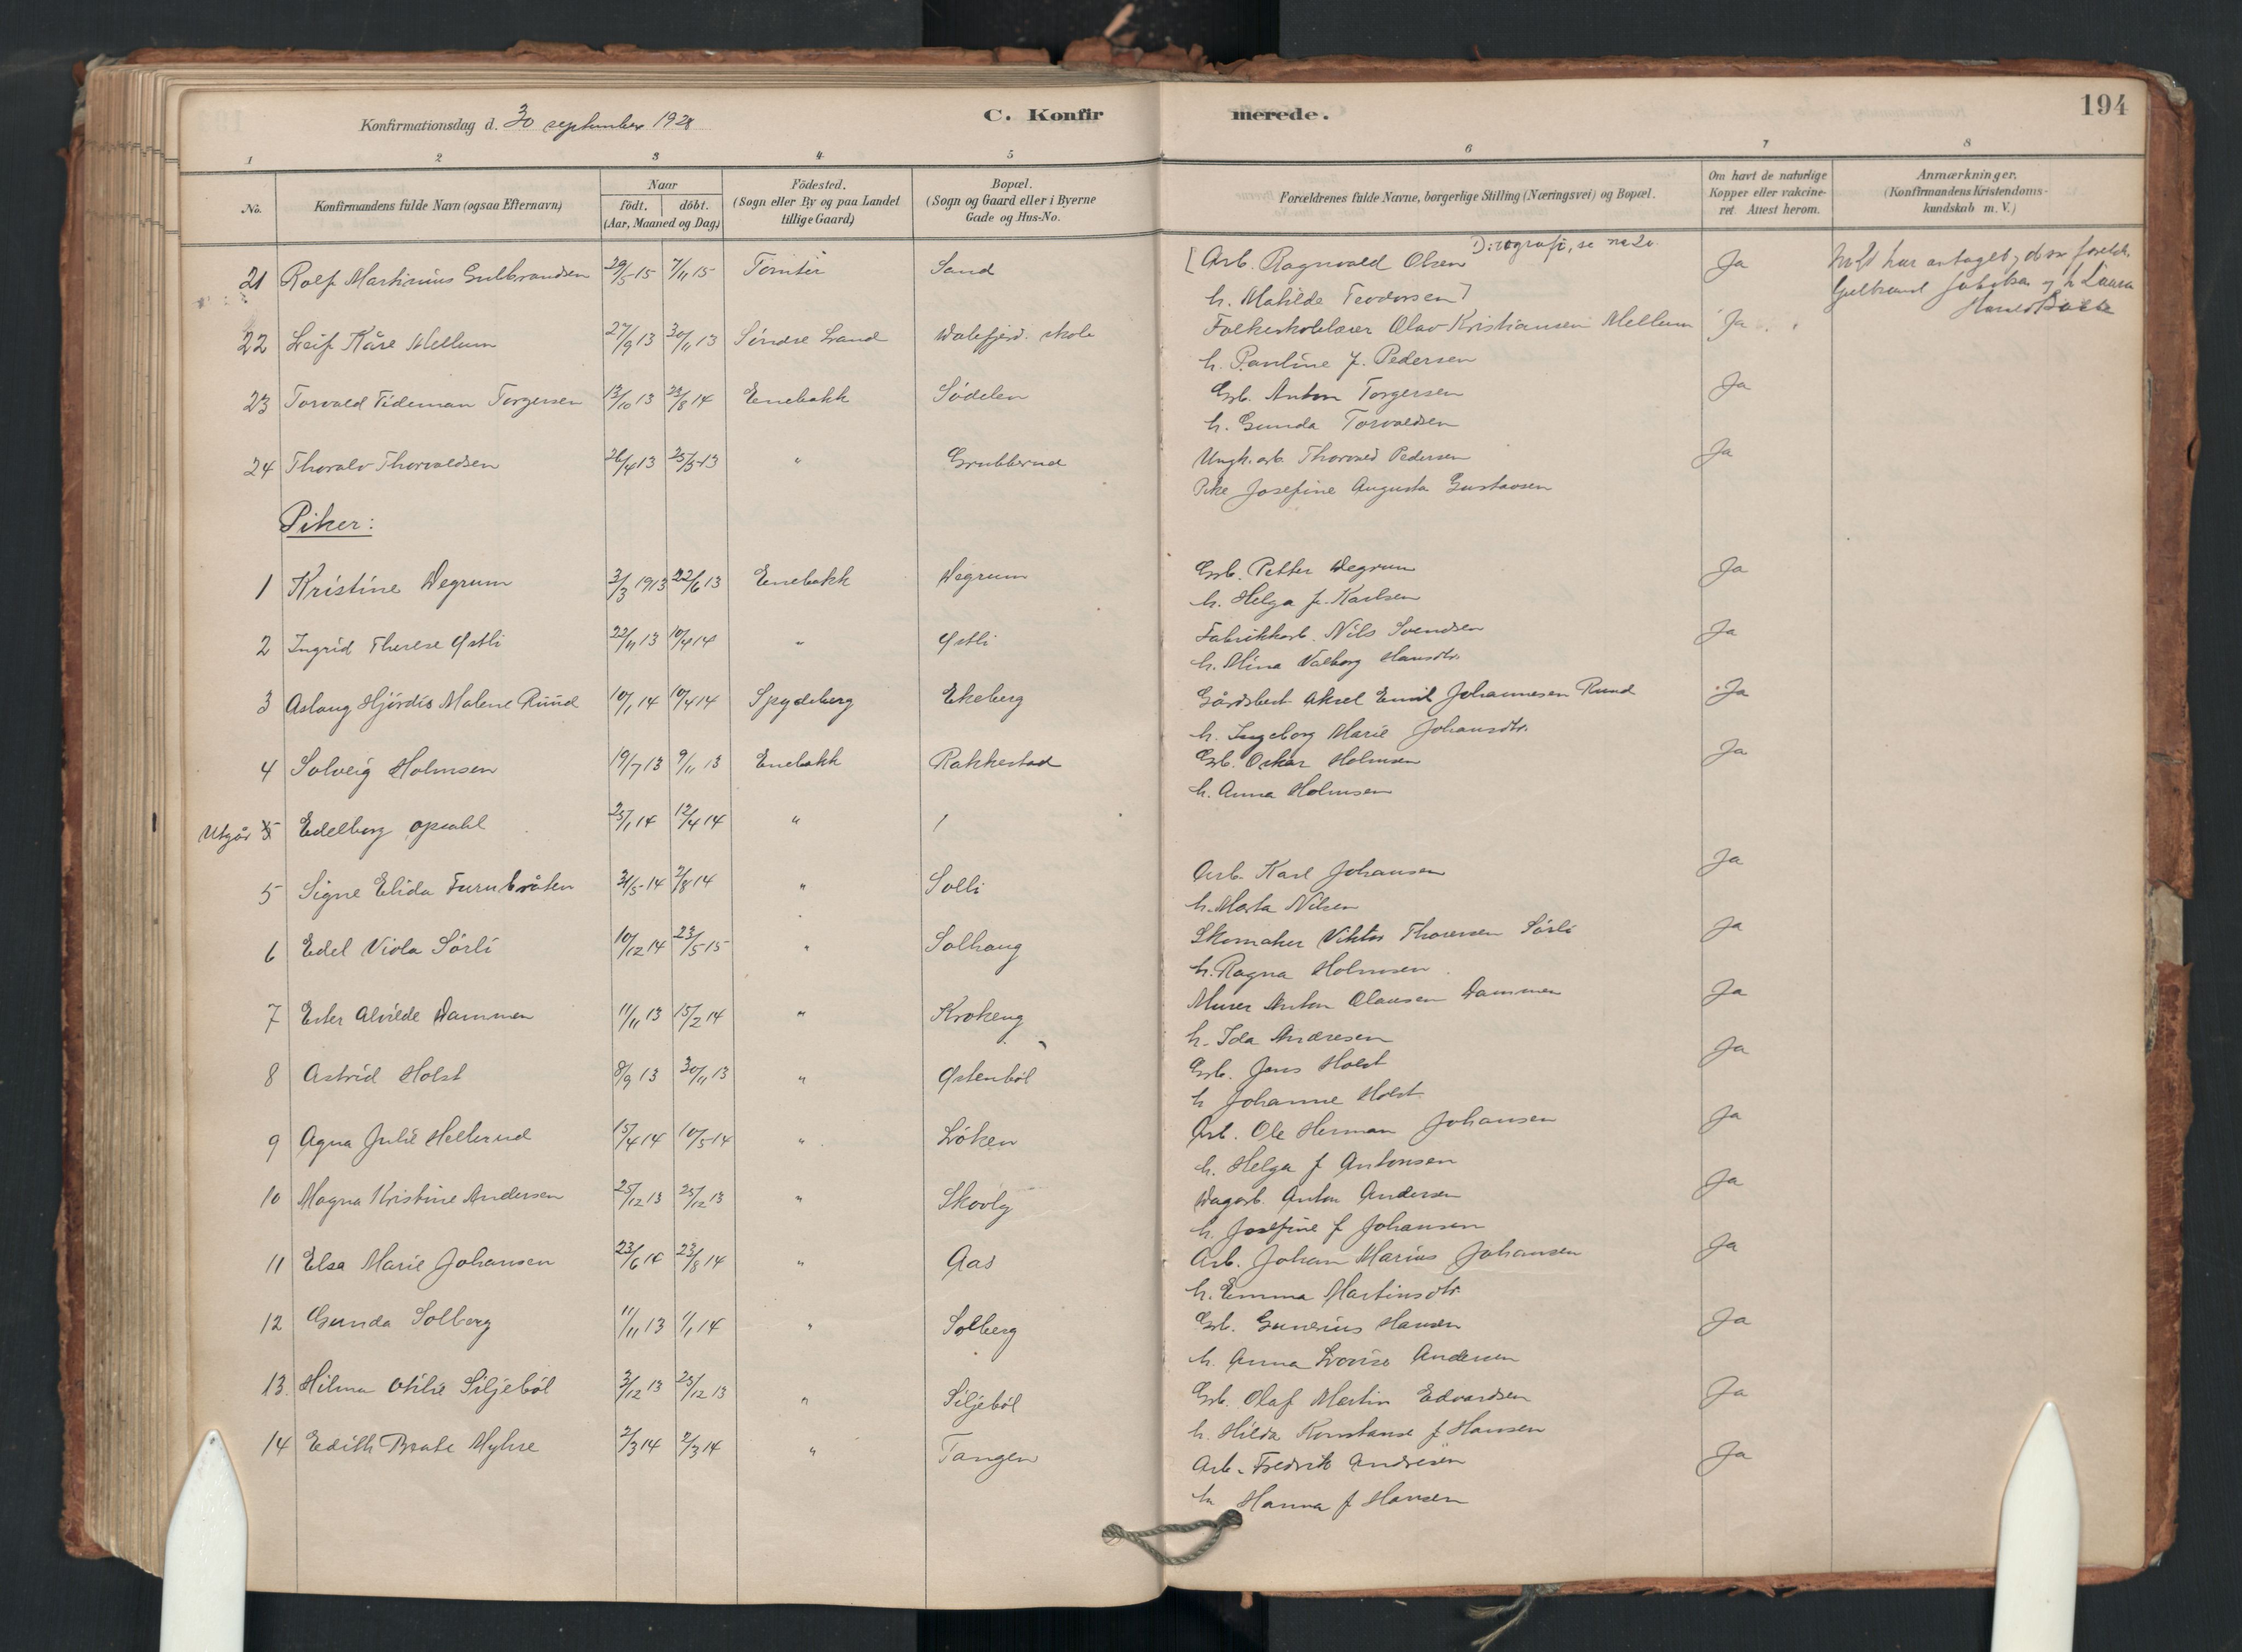 194
Konfirmationsdag d. 30 september 1928
C. Konfirmerede.
1 2 3 4 5 6 7 8
No.
Konfirmandens fulde Navn (ogsaa Efternavn)
Naar
födt. döbt.
(Aar, Maaned og Dag)
Födested.
(Sogn eller By og paa Landet
tillige Gaard)
Bopæl.
(Sogn og Gaard eller i Byerne
Gade og Hus-No.
Forældrenes fulde Navne, borgerlige Stilling (Næringsvei) og Bopæl.
Om havt de naturlige
Kopper eller vakcine-
ret. Attest herom.
Anmærkninger.
(Konfirmandens Kristendoms-
kundskab m. V.)
21 Rolf Martinius Gulbrandsen 29/5-15 7/11 15 Tomter Sand [Arb. Ragnvald Olsen se no 20. Ja
h. Mathilde Teodorsen]
22 Leif Kåre Mellum 27/9 13 30/11 13 Søndre Land Dalefjerd. skole Folkeskolelærer Olav Kristiansen Mellum Ja
h. Pauline f. Pedersen
23 Torvald Tideman Torgersen 13/10 13 23/8 14 Enebakk Sødelen Grb. Anton Torgersen Ja
h. Gunda Torvaldsen
24 Thoralv Thorvaldsen 26/4 13 25/5-13 " Grubberud Ungk. arb. Thorvald Pedersen Ja
Pike Josefine Augusta Gustavsen
Piker:
1 Kristine Degrum 3/3 1913 22/6 13 Enebakk Degrum Grb. Petter Degrum Ja
h. Helga f. Karlsen
2 Ingrid Therese Østli 22/11 13 10/4 14 " Østli Fabrikkarb. Nils Svendsen Ja
h. Alina Valborg Hansdtr.
3 Aslaug Hjørdis Malene Ruud 10/1 14 10/4 14 Spydeberg Ekeberg Gårdsbest. Aksel Emil Johannesen Ruud Ja
h. Ingeborg Marie Johansdtr.
4 Solveig Holmsen 19/7 13 9/11 13 Enebakk Rakkestad Grb. Oskar Holmsen Ja
h. Anna Holmsen
Utgår 5 Edelborg Opsahl 25/1 14 12/4 14 " /
5 Signe Elida Furubråten 31/5-14 2/8 14 " Solli Arb. Karl Johansen Ja
h. Marta Nilsen
6 Edel Viola Sørli 10/12 14 23/5-15 " Solhaug Skomaker Viktor Thoresen Sørli Ja
h. Ragna Holmsen
7 Ester Alvilde Dammen 11/11 13 15/2 14 " Krokeng Murer Anton Olausen Dammen Ja
h. Ida Andresen
8 Astrid Holst 8/9 13 30/11 13 " Østenbøl Grb. Jens Holst Ja
h Johanne Holst
9 Agna Julie Hellerud 15/4 14 10/5-14 " Løken Arb. Ole Herman Johansen Ja
h. Helga f Antonsen
10 Magna Kristine Andersen 25/12 13 25/12 13 " Skovly Dagarb. Anton Andersen Ja
h. Josefine f Johansen
11 Elsa Marie Johansen 23/6 14 23/8 14 " Aas Arb. Johan Marius Johansen Ja
h. Emma Martinsdtr.
12 Gunda Solberg 11/11 13 1/1 14 " Solberg Grb. Gunerius Hansen Ja
h. Anna Lovise Andersen
13. Hilma Otilie Siljebøl 3/12 13 25/12 13 " Siljebøl Grb. Olaf Martin Edvardsen Ja
h. Hilda Konstanse f Hansen
14 Edith Beate Myhre 2/3 14 2/3 14 " Tangen Arb. Fredrik Andresen Ja
h Hanna f Hansen